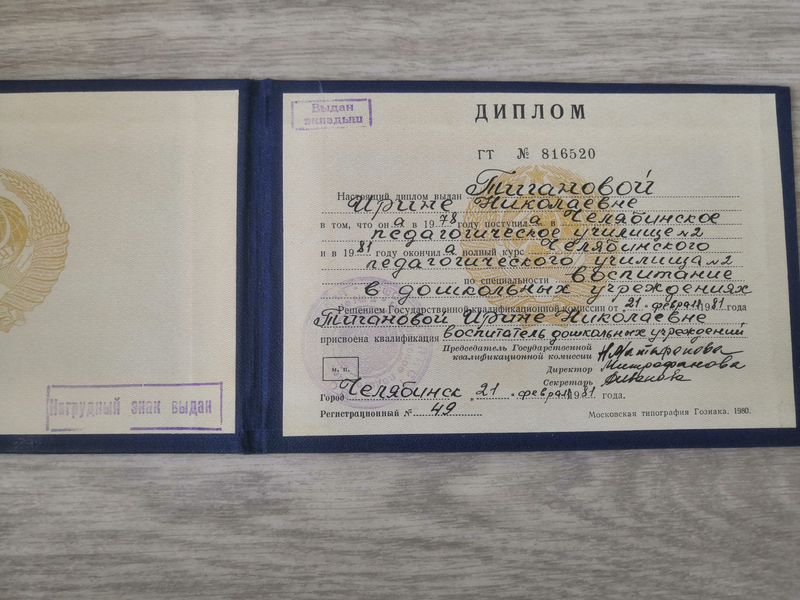 Нагрудный знак выдан
Выдан
вкладыш
ДИПЛОМ
ГТ № 816520
Настоящий диплом выдан Тигановой
Ирине Николаевне
в том, что он а в 1978 году поступил а в Челябинское
педагогическое училище №2
и в 1981 году окончил а полный курс Челябинского
педагогического училища №2
по специальности воспитание
в дошкольных учреждениях
Решением Государственной квалификационной комиссии от "21" февраля 1981 года
Тигановой Ирине Николаевне
присвоена квалификация воспитатель дошкольных учреждений
Председатель Государственной
квалификационной комиссии
Директор Митрофанова
Секретарь
м. п.
Город Челябинск "21" февраля 1981 года.
Регистрационный № 49
Московская типография Гознака. 1980.